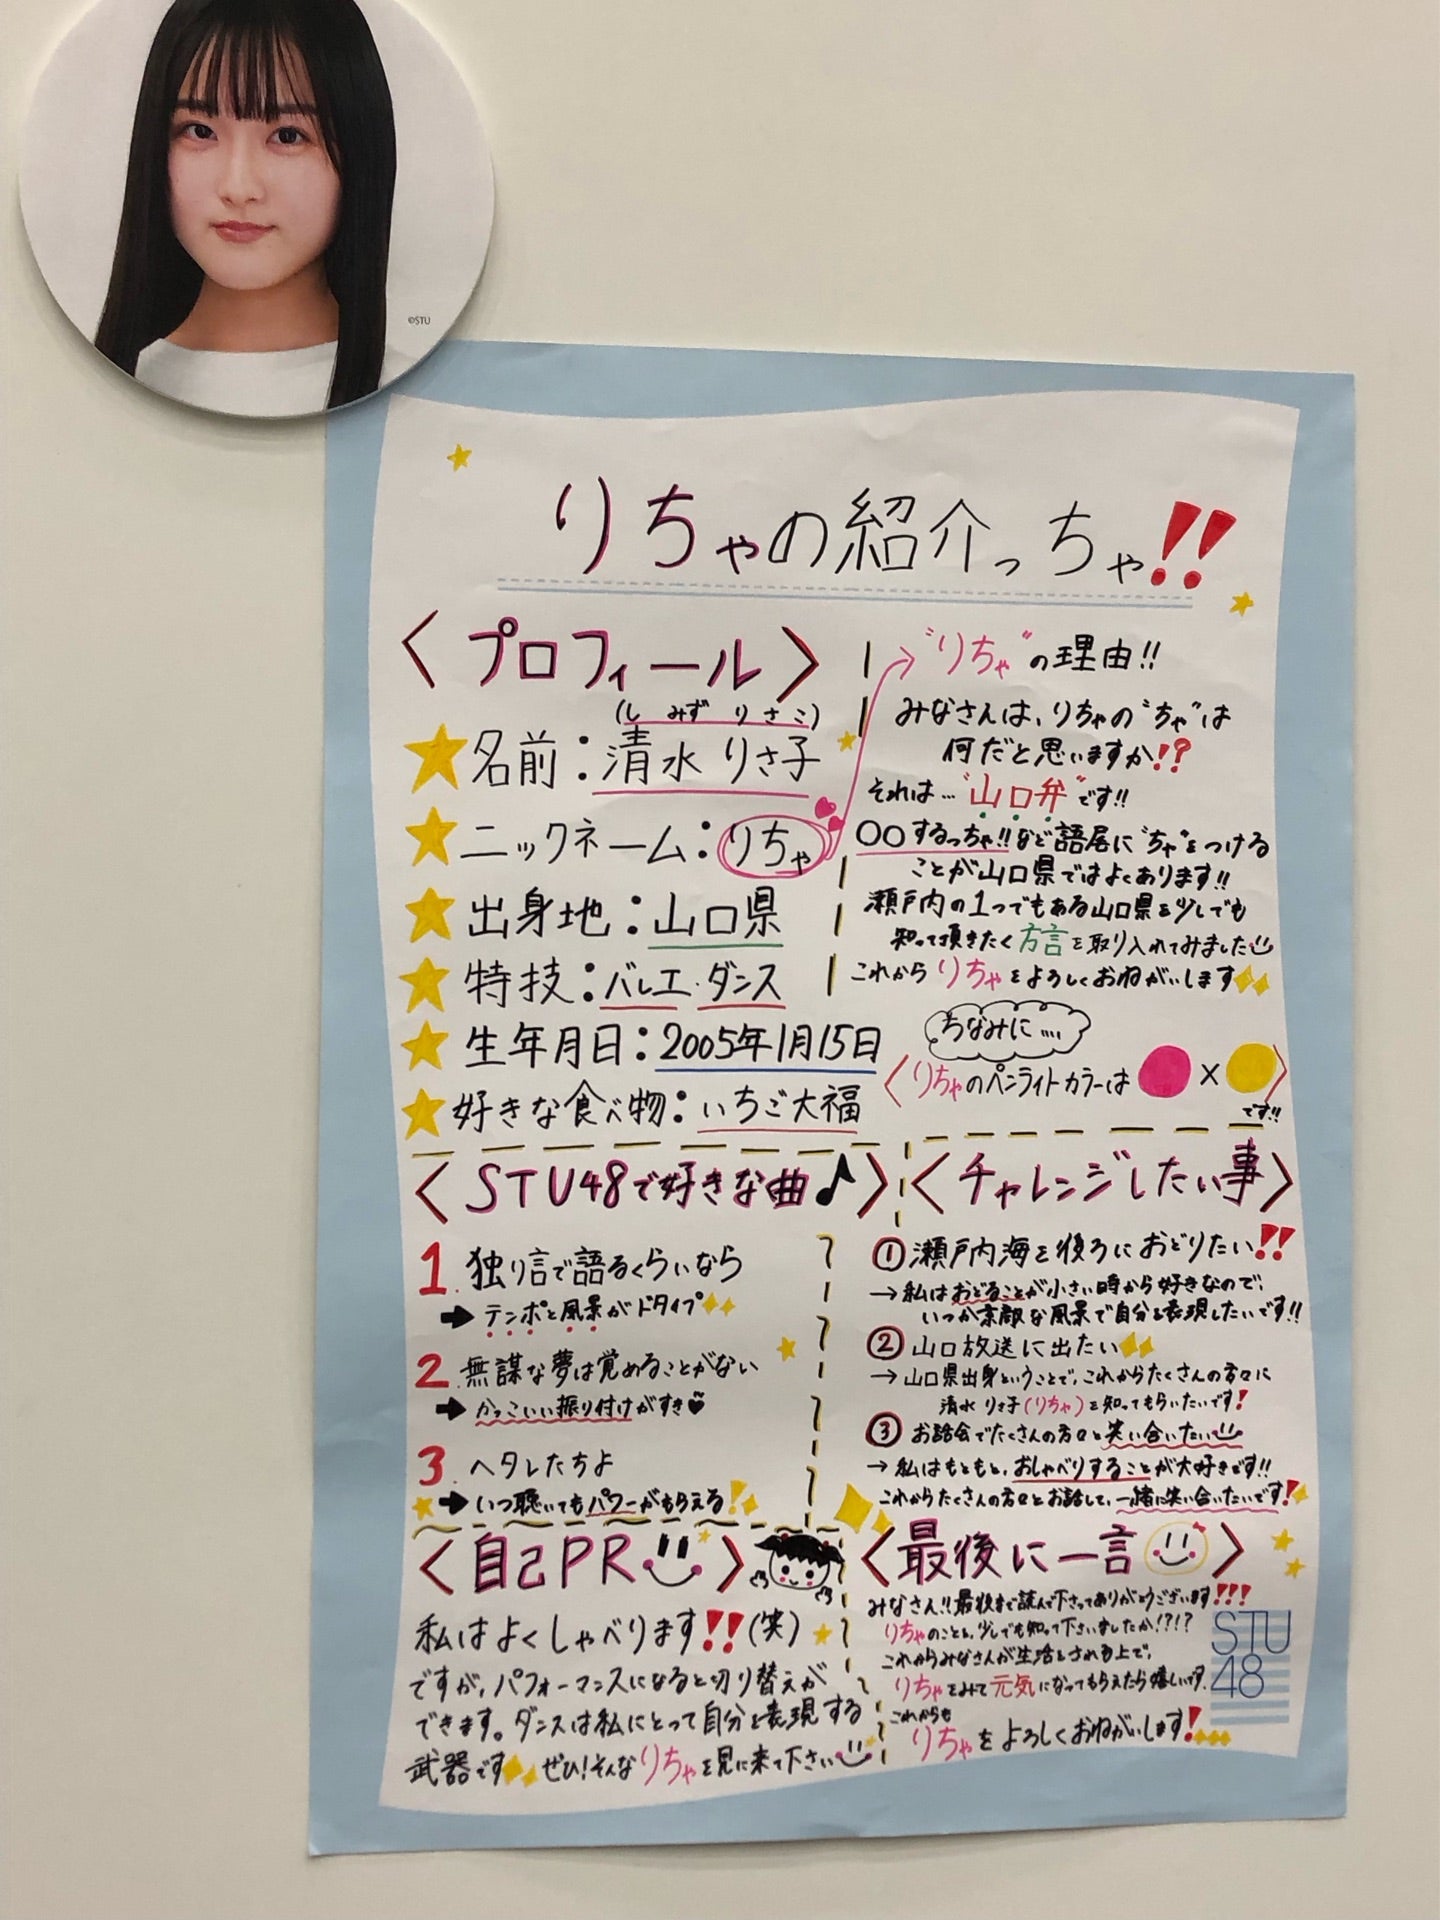 ©STU
りちゃの紹介っちゃ!!
〈プロフィール〉
(しみず りさこ)
名前：清水 りさ子
ニックネーム：りちゃ
出身地：山口県
特技：バレエ・ダンス
生年月日：2005年1月15日
好きな食べ物：いちご大福
"りちゃ"の理由!!
みなさんは、りちゃの"ちゃ"は
何だと思いますか!?
それは…"山口弁"です!!
〇〇するっちゃ!!など語尾に"ちゃ"をつける
ことが山口県ではよくあります!!
瀬戸内の1つでもある山口県を少しでも
知って頂きたく方言を取り入れてみました
これからりちゃをよろしくおねがいします
ちなみに….
〈りちゃのペンライトカラーは × 〉
です!!
〈STU48で好きな曲♪〉
1.独り言で語るくらいなら
➡テンポと風景がドタイプ
2.無謀な夢は覚めることがない
➡かっこいい振り付けがすき
3.ヘタレたちよ
➡いつ聴いてもパワーがもらえる!
〈チャレンジしたい事〉
①瀬戸内海を後ろにおどりたい!!
→私はおどることが小さい時から好きなので、
いつか素敵な風景で自分を表現したいです!!
②山口放送に出たい
→山口県出身ということで、これからたくさんの方々に
清水 りさ子(りちゃ)を知ってもらいたいです!
③お話会でたくさんの方々と笑い合いたい
→私はもともと、おしゃべりすることが大好きです!!
これからたくさんの方々とお話して、一緒に笑い合いたいです!
〈自己PR〉
私はよくしゃべります!!(笑)
ですが、パフォーマンスになると切り替えが
できます。ダンスは私にとって自分を表現する
武器です ぜひ!そんなりちゃを見に来て下さい
〈最後に一言〉
みなさん!!最後まで読んで下さってありがとうございます!!!
りちゃのことを、少しでも知って下さいましたか!?!?
これからみなさんが生活をされる上で、
りちゃをみて元気になってもらえたら嬉しいです。
これからも
りちゃをよろしくおねがいします!
STU
48